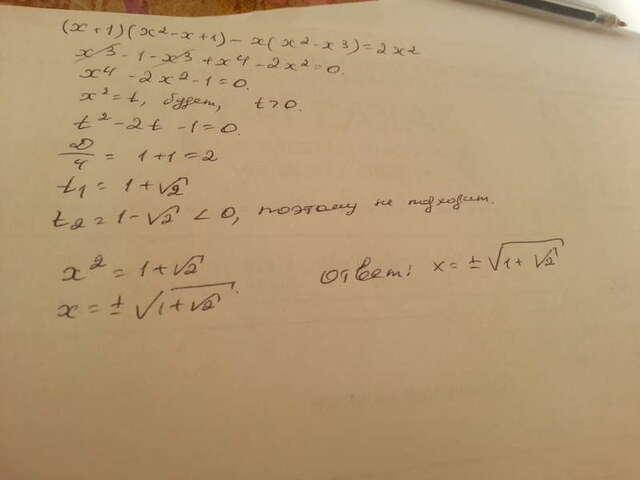 (x+1)(x²-x+1)-x(x²-x³)=2x²
x³-1-x³+x⁴-2x²=0.
x⁴-2x²-1=0.
x²=t, будет, t>0.
t²-2t-1=0.
D/4 = 1+1=2
t₁=1+√2
t₂=1-√2<0, поэтому не подходит.
x²=1+√2
x=±√(1+√2).
Ответ: x=±√(1+√2)